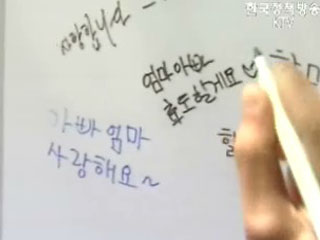 사랑합니다
한국정책방송
KTV
엄마 아빠
효도할게요
아빠 엄마
사랑해요~
할